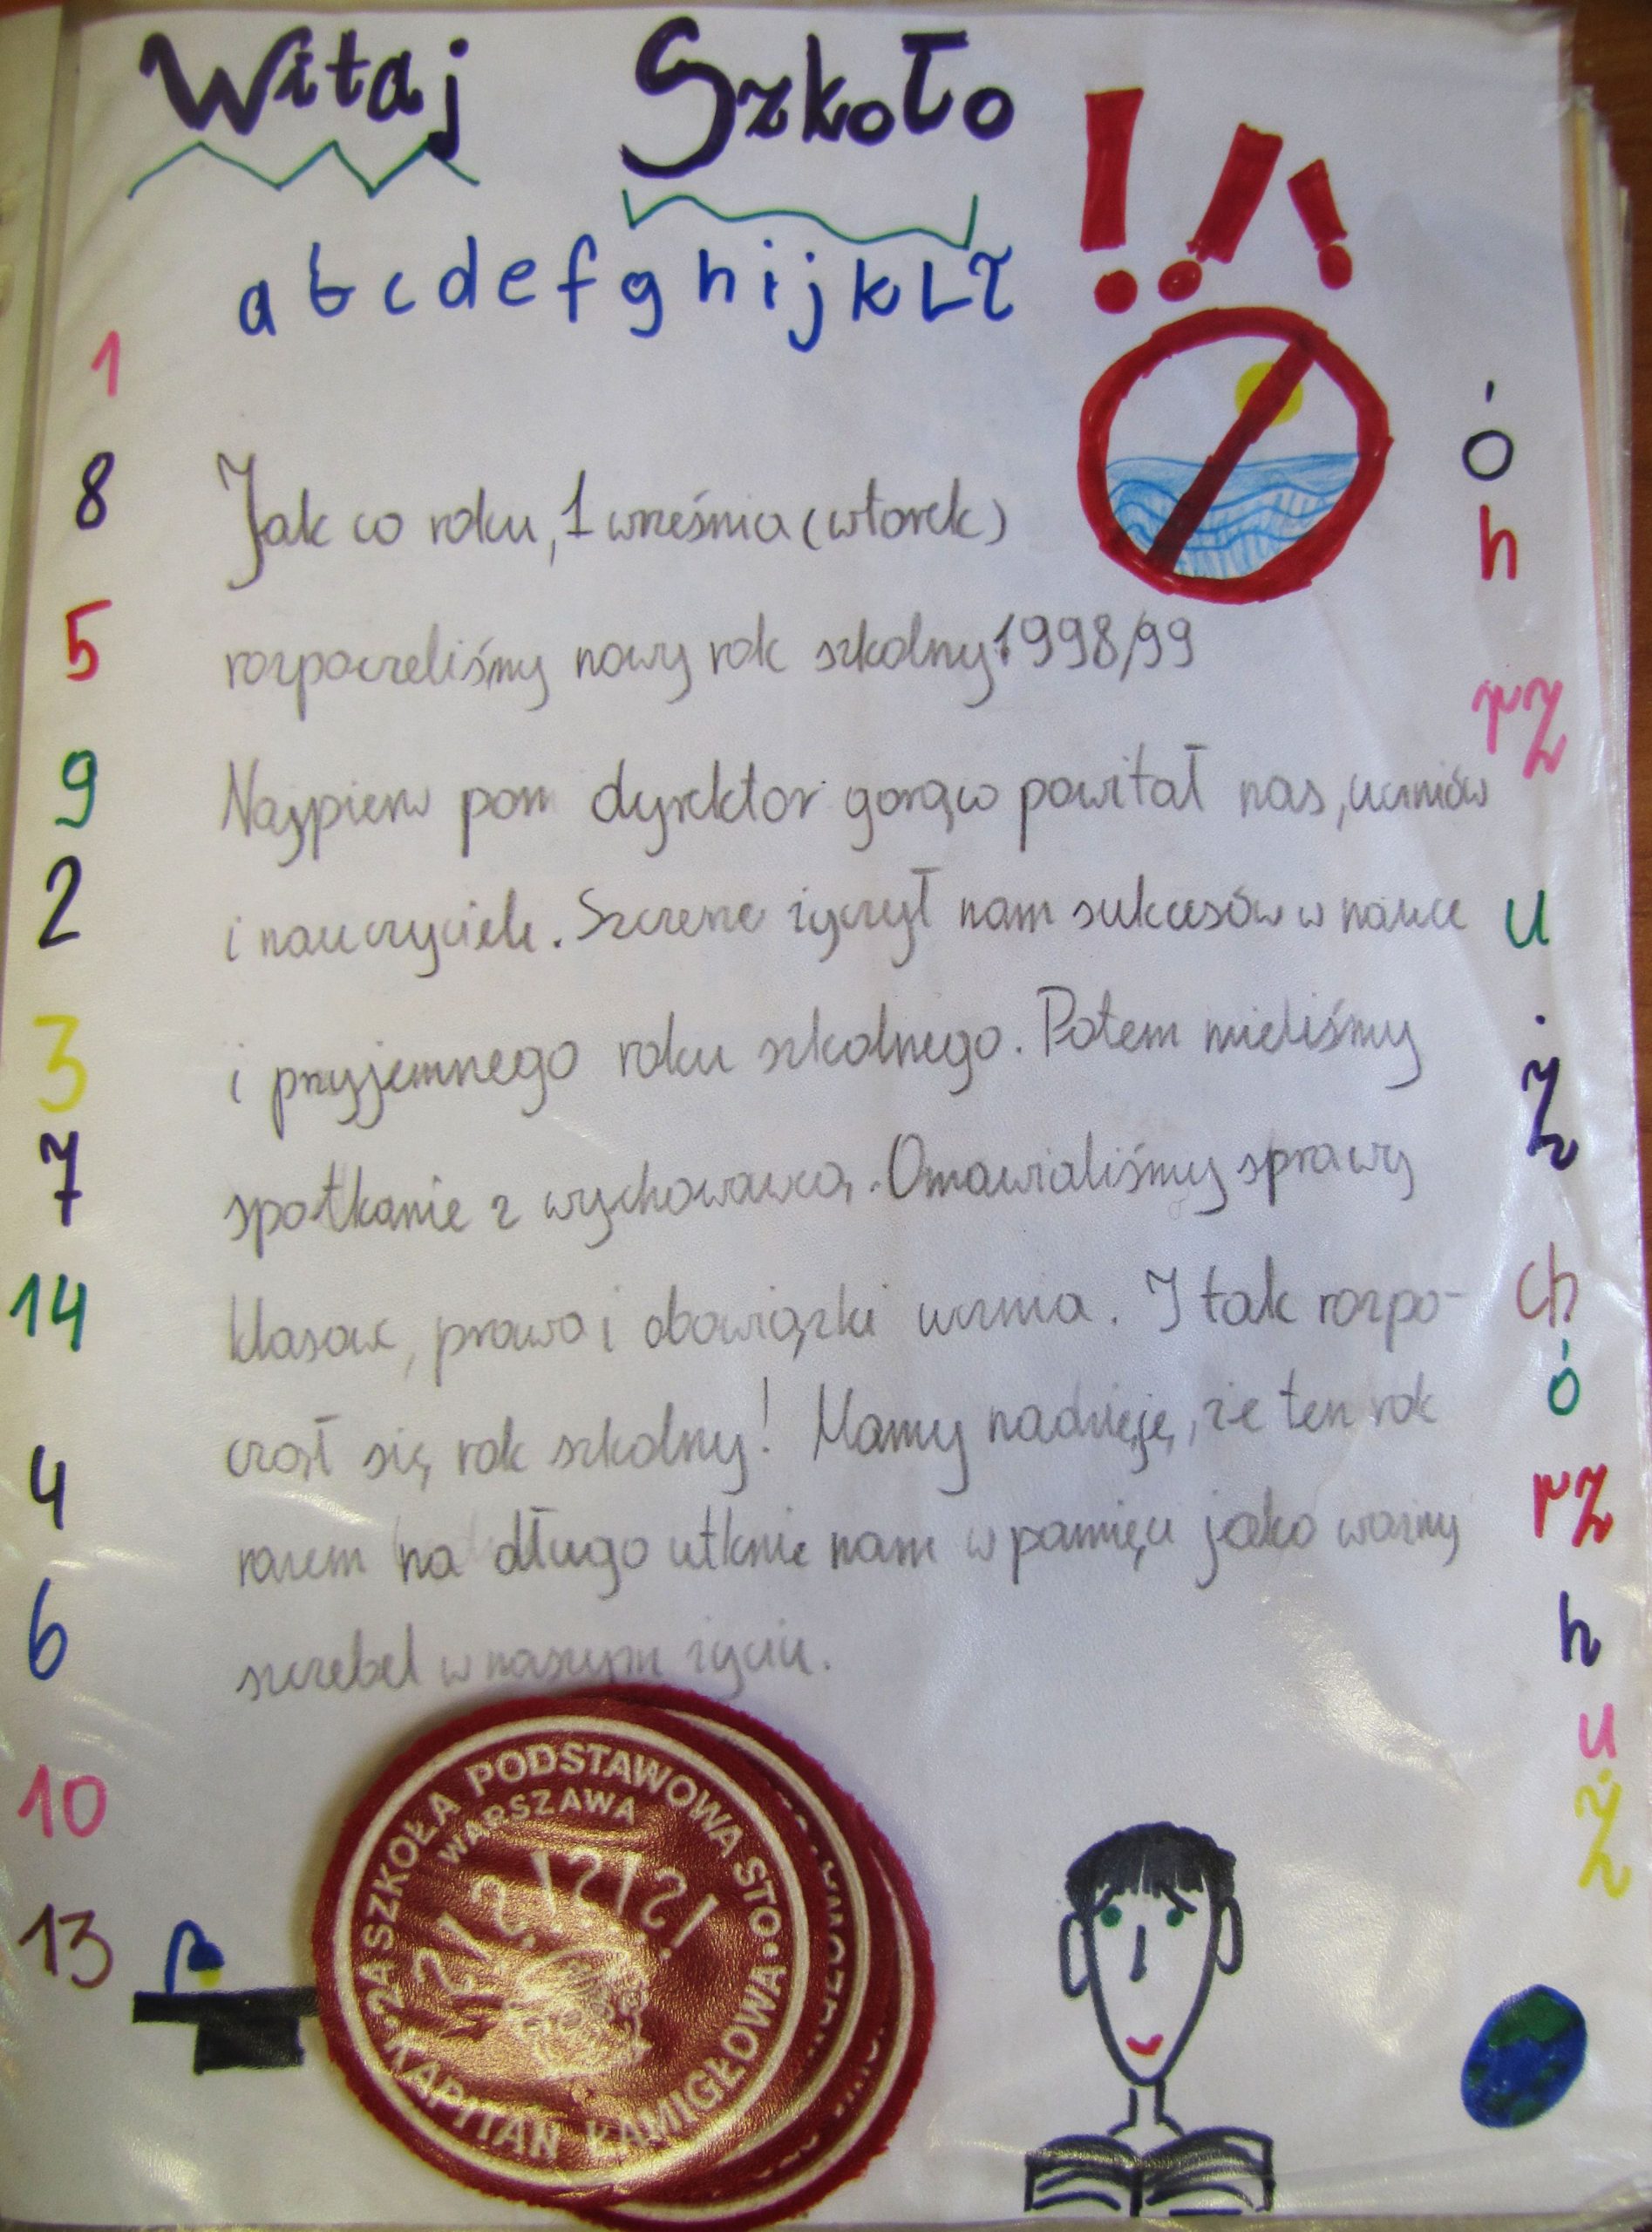 Witaj Szkoło !!!
abcdefghijklł
1
8
5
9
2
3
7
14
4
6
10
13
Jak co roku, 1 września (wtorek)
rozpoczeliśmy nowy rok szkolny 1998/99
Najpierw pan dyrektor gorąco powitał nas, uczniów
i nauczycieli. Szczerze życzył nam sukcesów w nauce
i przyjemnego roku szkolnego. Potem mieliśmy
spotkanie z wychowawcą. Omawialiśmy sprawy
klasowe, prawa i obowiązki ucznia. I tak rozpo-
czął się rok szkolny! Mamy nadzieję, że ten rok
razem na długo utknie nam w pamięci jako ważny
szczebel w naszym życiu.
ó
h
rz
u
ż
ch
ó
rz
h
u
ż
SZKOŁA PODSTAWOWA STO
WARSZAWA
?!?!?!?!?!
24 KAPITAN ŁAMIGŁOWA